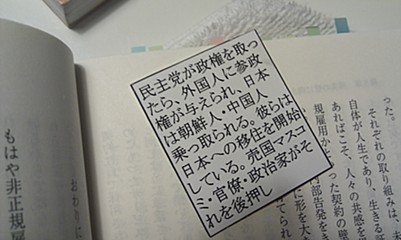 民主党が政権を取っ
たら、外国人に参政
権が与えられ、日本
は朝鮮人・中国人
乗っ取られる。彼らは
日本への移住を開始
している。売国マスコ
ミ・官僚・政治家がそ
れを後押し
った。
それぞれの取り組みは、未
自体が人生であり、生きる
あればこそ、人々の共感を
規雇用か
った契約の壁
部告発をき
に形を大き
てられ
おわりに
もはや非正規雇